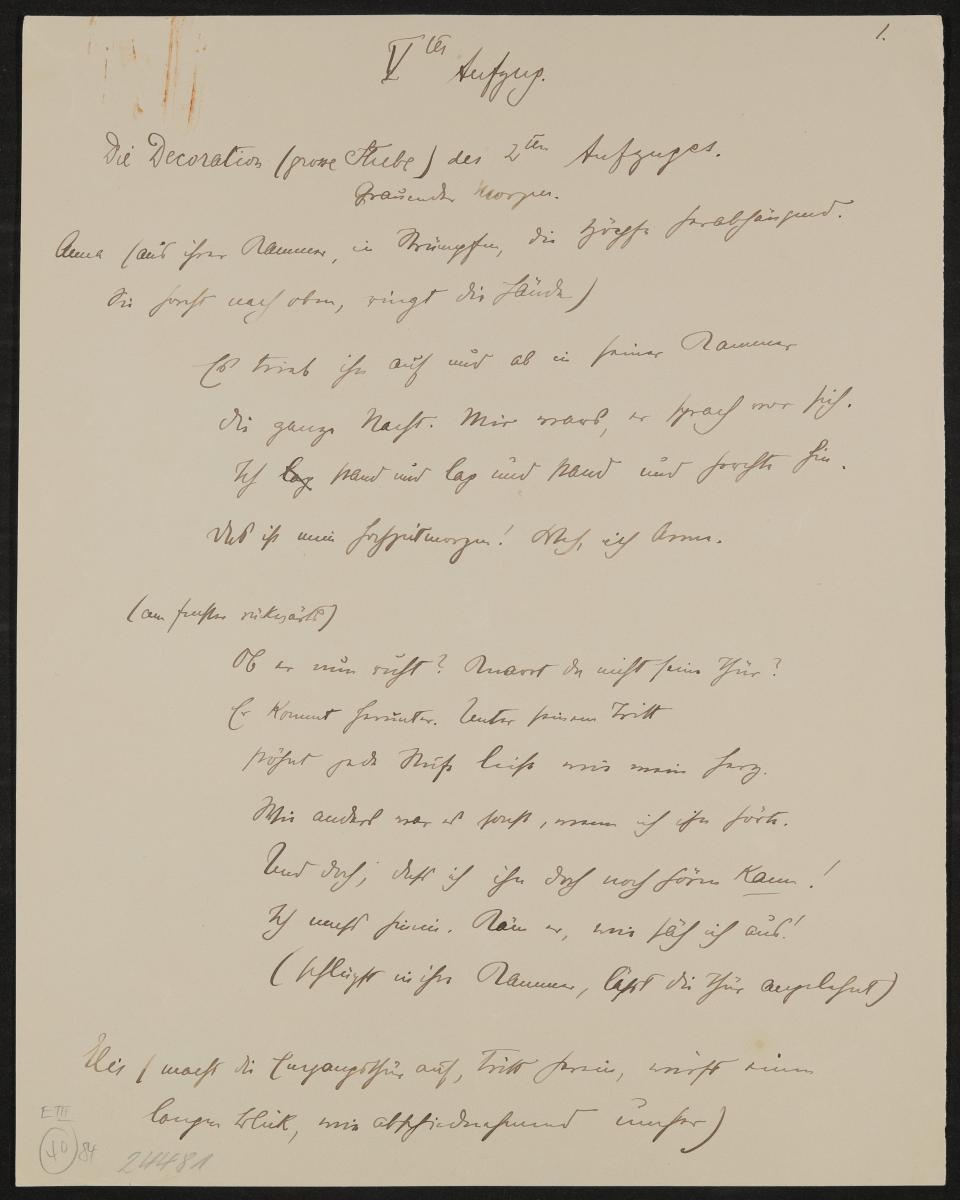 1.
V ter Aufzug.
Die Decoration (grosse Stube) des 2ten Aufzuges.
Grauender Morgen.
Anna (aus ihrer Kammer, in Strümpfen, die Zöpfe herabhängend.
Sie horcht nach oben, ringt die Hände)
Es trieb ihn auf und ab in seiner Kammer
die ganze Nacht. Mir war's, er sprach vor sich.
Ich lag stand und lag und stand und horchte hin.
Das ist mein Hochzeitmorgen! Weh, ich Arme.
(am Fenster rückwärts)
Ob er nun ruht? Knarrt da nicht seine Thür?
Er kommt herunter. Unter seinem Tritt
stöhnt jede Stufe leise wie mein Herz.
Wie anders war es sonst, wenn ich ihn hörte.
Und doch, dass ich ihn doch noch hören kann!
Ich muss hinein. Käm er, wie säh ich aus!
(schlüpft in ihre Kammer, läßt die Thür angelehnt)
Elis (macht die Eingangsthür auf, tritt herein, wirft einen
langen Blick, wie abschiednehmend umher)
E III
40 84
24481